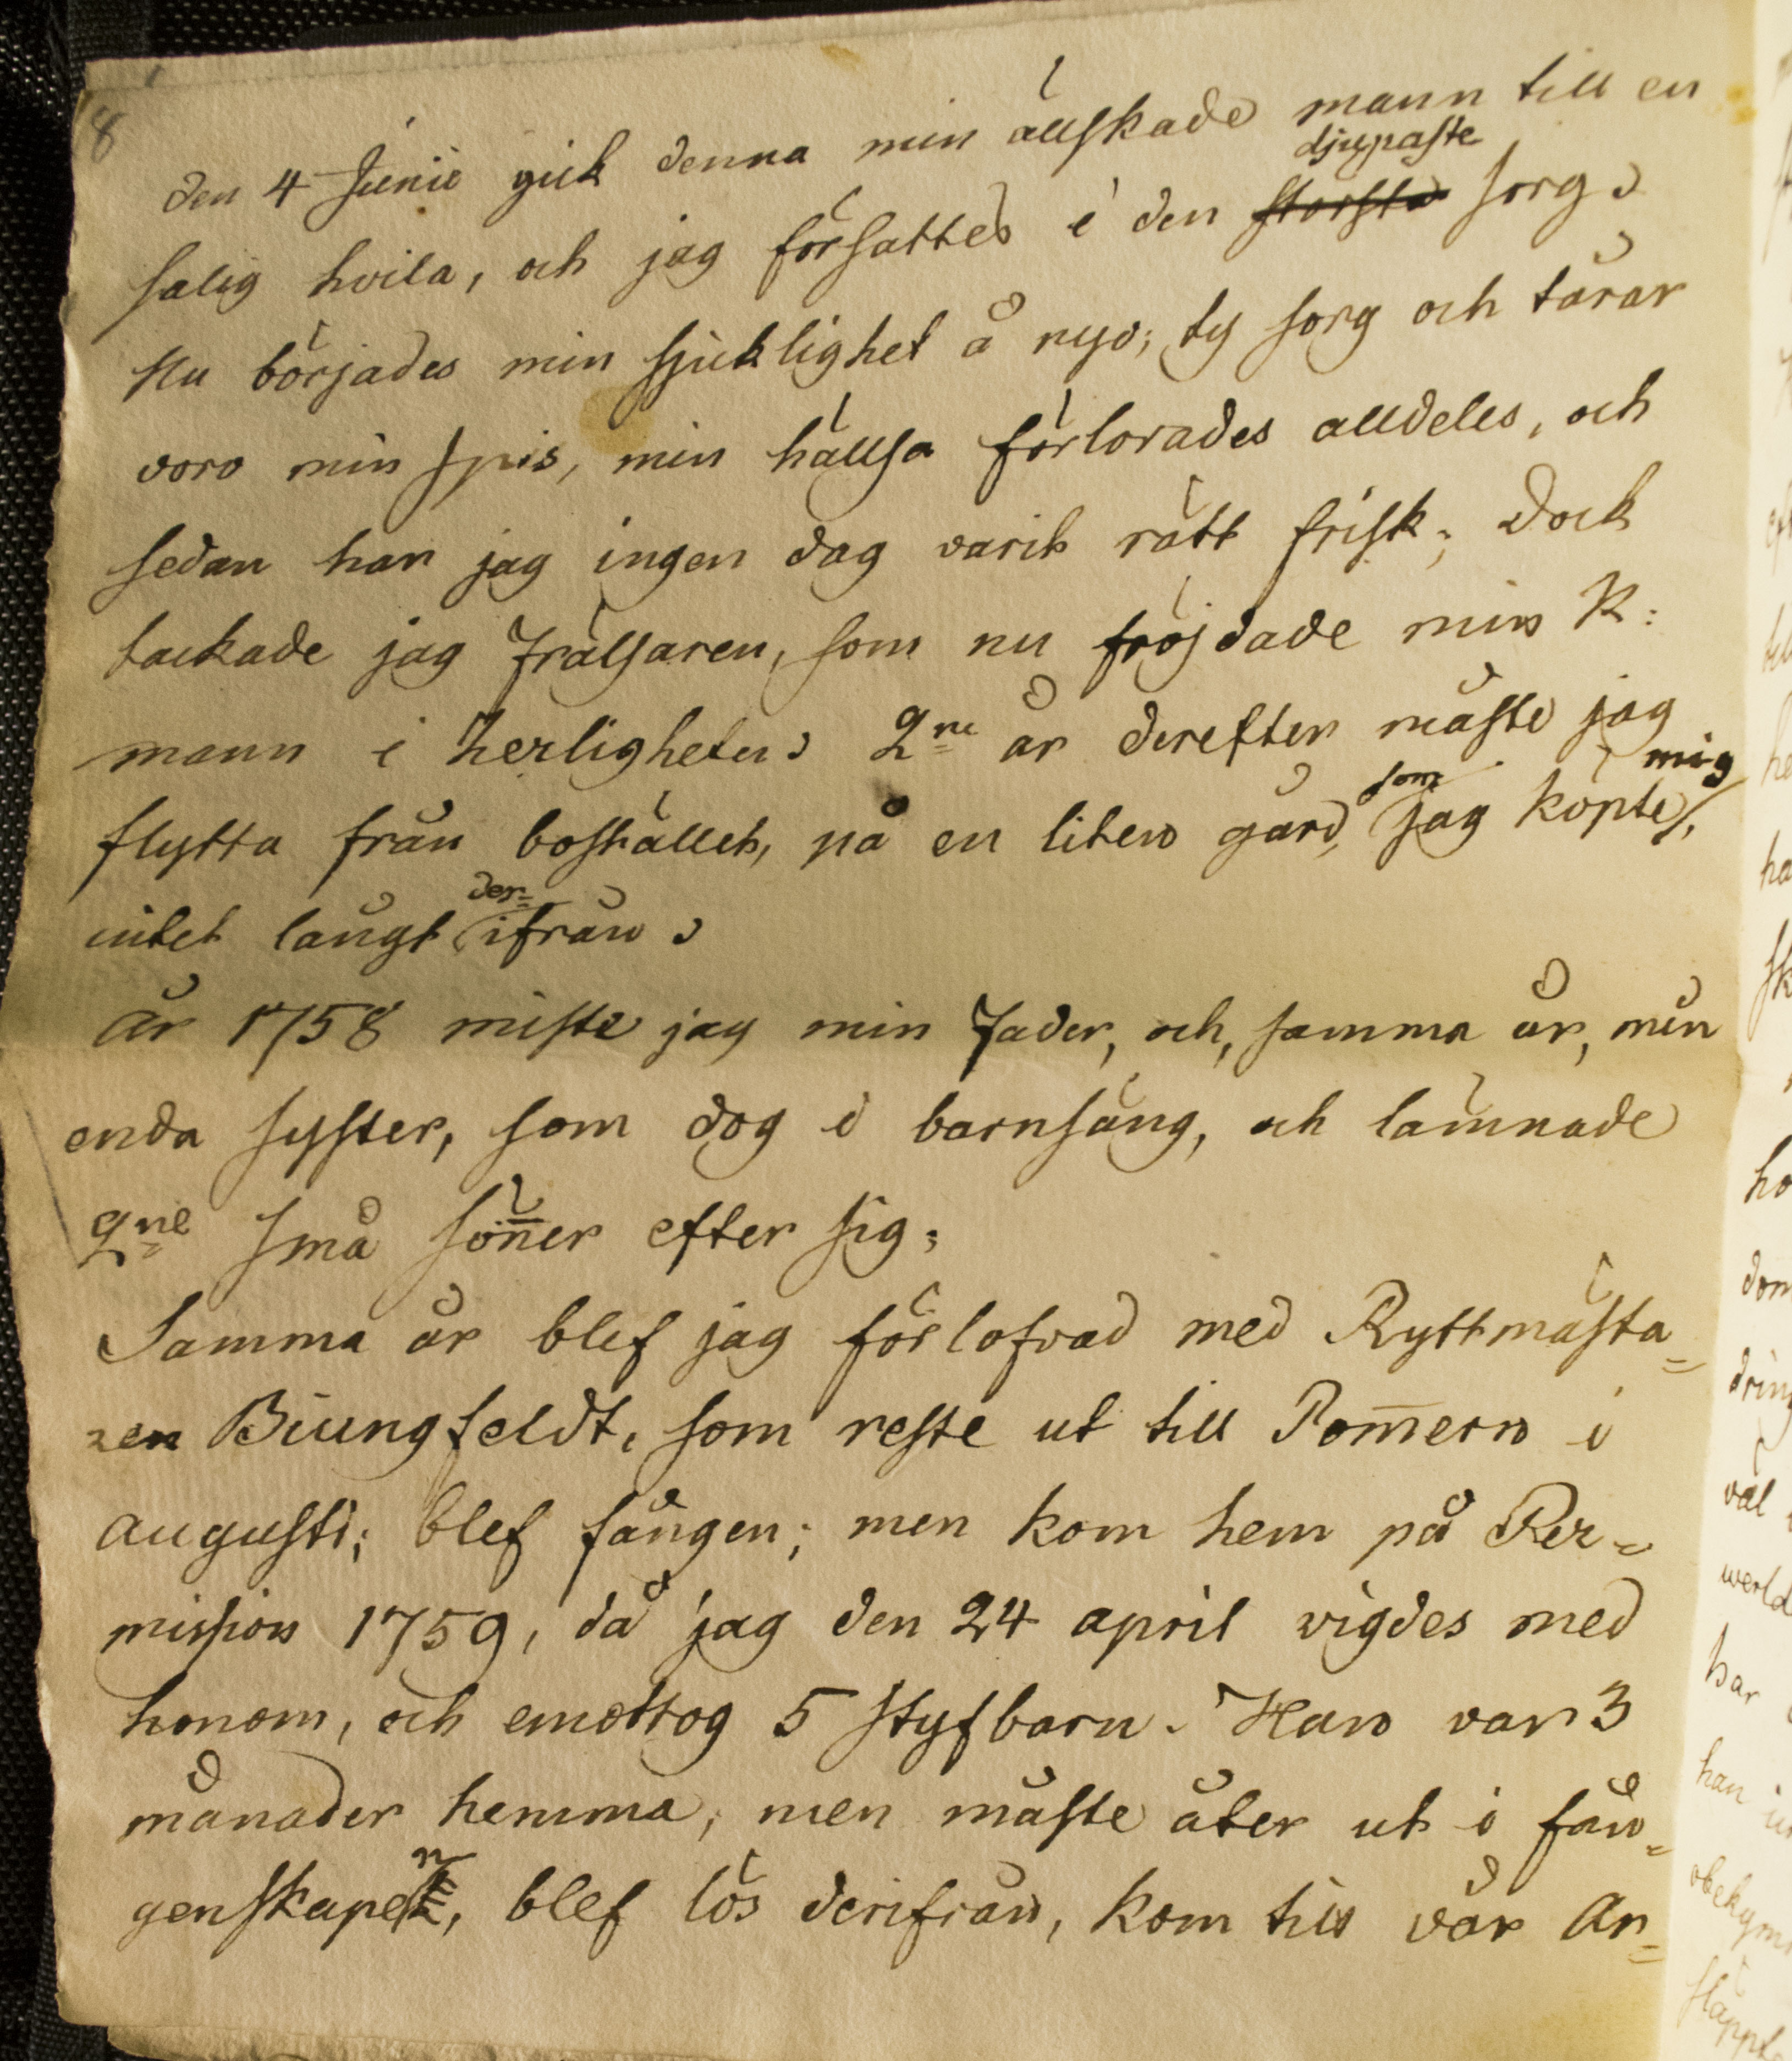 8
den 4 Junii gick denna min ällskade mann till en
djupaste
salig hvila, och jag försattes i den största sorg.
Nu börjades min sjuklighet å nyo; ty sorg och tårar
voro min spis, min hällsa förlorades alldeles, och
sedan har jag ingen dag varit rätt frisk; Dock
tackade jag Frälsaren, som nu fröjdade min K:
mann i Herligheten. 2ne år derefter måste jag
som mig
flytta från boställett, på en liten gård, jag köpte,
der=
intet långt ifrån.
År 1758 miste jag min Fader, och, samma år, min
enda syster, som dog i barnsäng, och lämnade
2ne små sön̄er efter sig;
Samma år blef jag förlofvad med Ryttmästa=
ren Biungfeldt, som reste ut till Pom̄ern i
augusti; blef fången; men kom hem på Per=
mission 1759, då jag den 24 april vigdes med
honom, och emottog 5 styfbarn. Han var 3
månader hemma, men måste åter ut i fån=
n
genskapet, blef lös derifrån, kom till vår Ar=